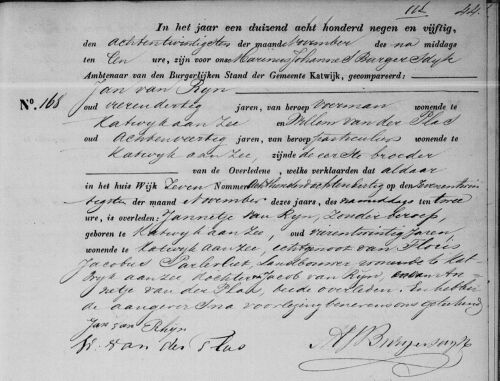 44
In het jaar een duizend acht honderd negen en vijftig,
den achtentwintigsten der maand November des na middags
ten een ure, zijn voor ons: Marinus Johannes Burgersdyk
Ambtenaar van den Burgerlijken Stand der Gemeente Katwijk, gecompareerd:
Jan van Ryn
No. 168
oud vierendertig jaren, van beroep voerman wonende te
Katwyk aan Zee en Willem van der Plas
oud achtenveertig jaren, van beroep particulier wonende te
Katwyk aan Zee, zijnde de eerste broeder
van de Overledene, welke verklaarden dat aldaar
in het huis Wijk Zeven Nommer op den Zeventwin
tigsten der maand November dezes jaars, des namiddags ten twee
ure, is overleden: Jannetje van Ryn, zonder beroep,
geboren te Katwyk aan Zee, oud jaren,
wonende te Katwyk aan Zee, echtgenoot van Floris
Jacobus Parlevliet, Landbouwer wonende te Kat
wyk aan Zee dochter van Jacob van Ryn, en van
netje van der Plas, beide overleden. En hebben
de aangevers na voorlezing benevens ons geteekend
Jan van Rhijn
W. van der Plas
MJBurgersdyk